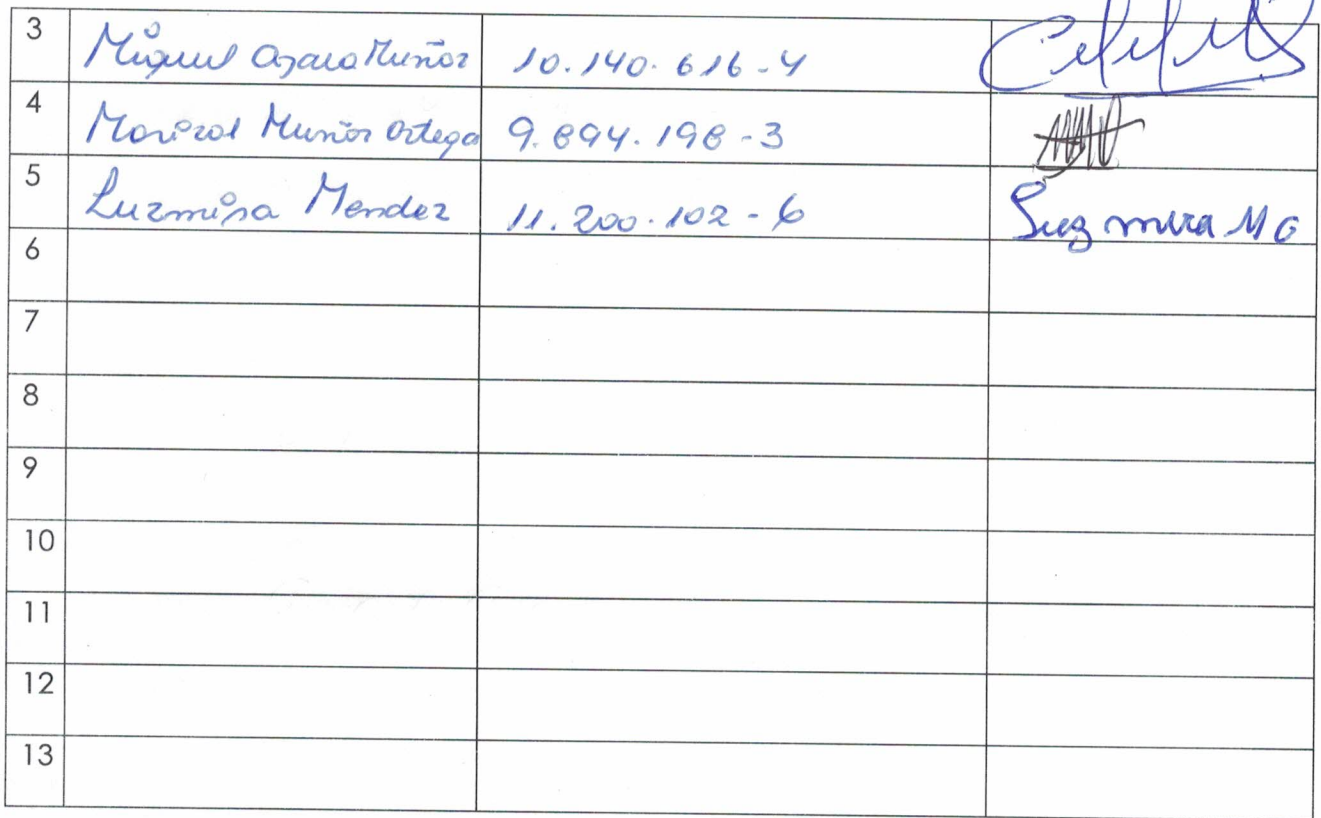 3 Miguel Ozara Muñoz 10.140.616-4
4 Marisol Muñoz Ortega 9.894.198-3
5 Luzmira Mendez 11.200.102-6 Luzmira M G
6
7
8
9
10
11
12
13